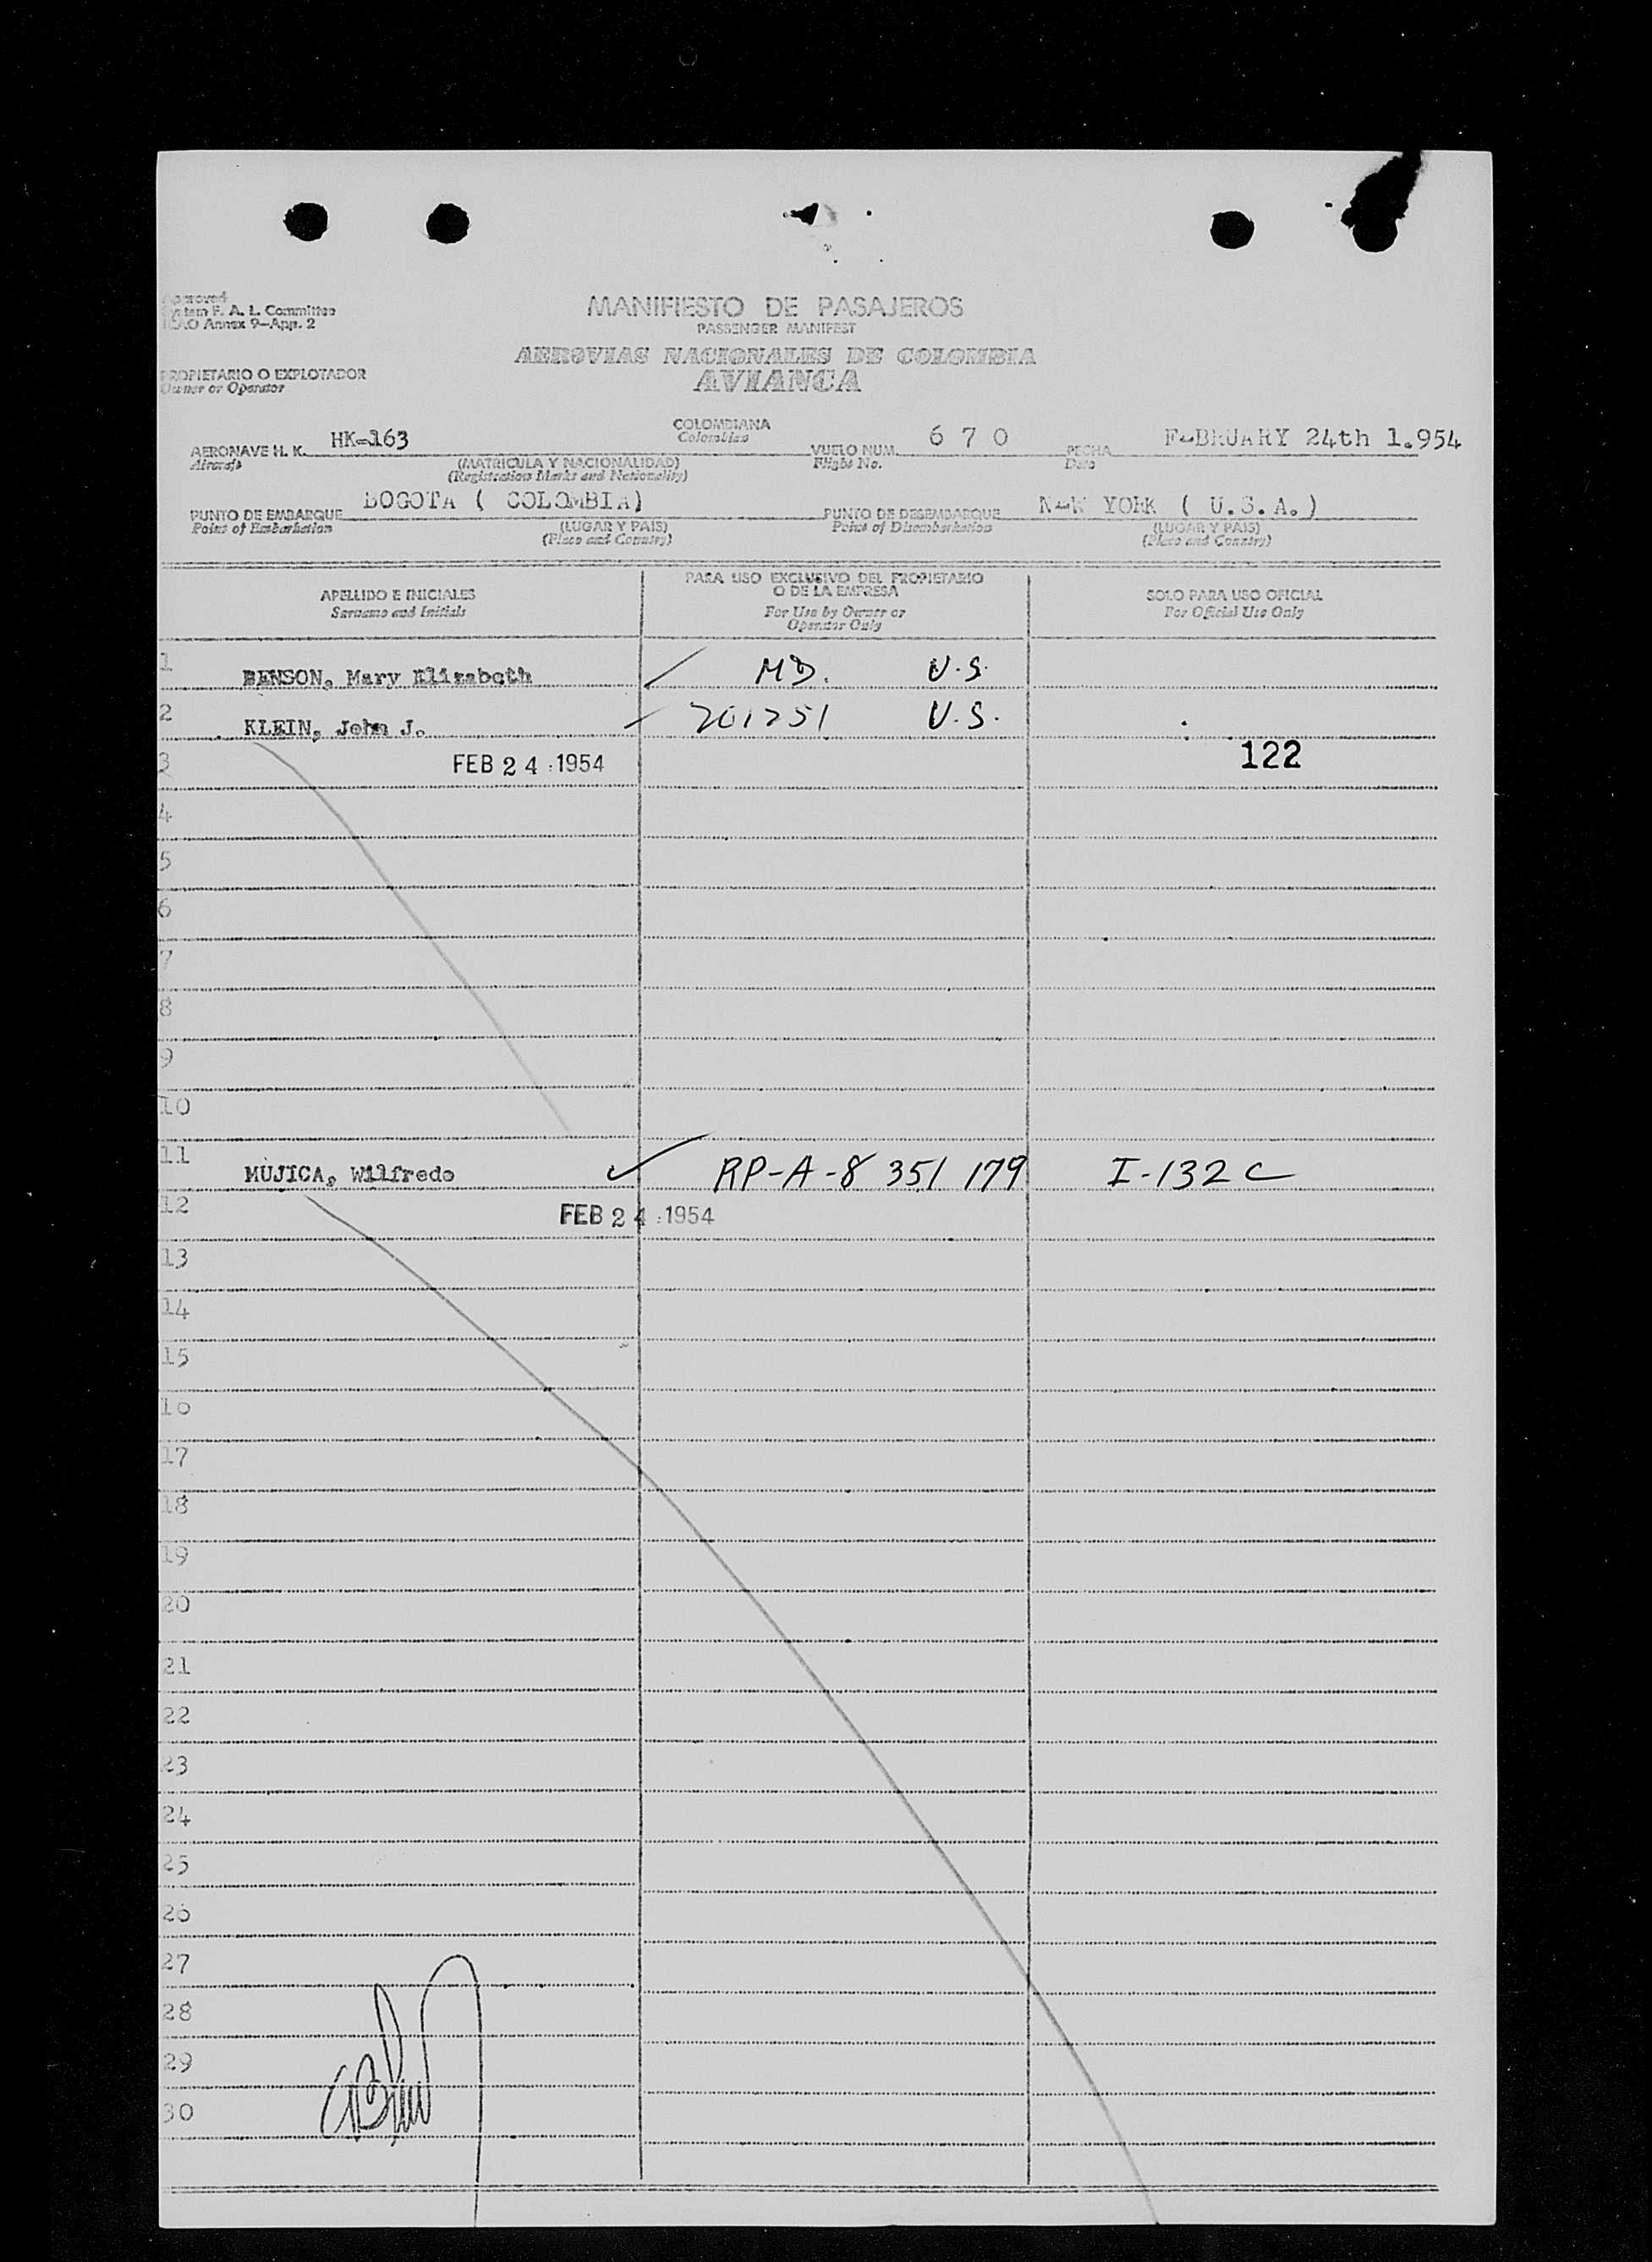 Approved
System F. A. L. Committee
ICAO Annex 9—App. 2
MANIFIESTO DE PASAJEROS
PASSENGER MANIFEST
AEROVIAS NACIONALES DE COLOMBIA
AVIANCA
PROPIETARIO O EXPLOTADOR
Owner or Operator
AERONAVE H. K. HK-163 COLOMBIANA VUELO NUM. 6 7 0 FECHA FEBRUARY 24th 1.954
Aircraft Colombian Flight No. Date
(MATRICULA Y NACIONALIDAD)
(Registration Marks and Nationality)
PUNTO DE EMBARQUE BOGOTA ( COLOMBIA) PUNTO DE DESEMBARQUE NEW YORK ( U.S.A.)
Point of Embarkation (LUGAR Y PAIS) Point of Disembarkation (LUGAR Y PAIS)
(Place and Country) (Place and Country)
APELLIDO E INICIALES PARA USO EXCLUSIVO DEL PROPIETARIO O DE LA EMPRESA SOLO PARA USO OFICIAL
Surname and Initials For Use by Owner or Operator Only For Official Use Only
1 BENSON, Mary Elizabeth MD. U.S.
2 KLEIN, John J. 201251 U.S.
3 FEB 24 1954 122
4
5
6
7
8
9
10
11 MUJICA, Wilfredo RP-A-8 351 179 I-132 C
12 FEB 24 1954
13
14
15
16
17
18
19
20
21
22
23
24
25
26
27
28
29
30